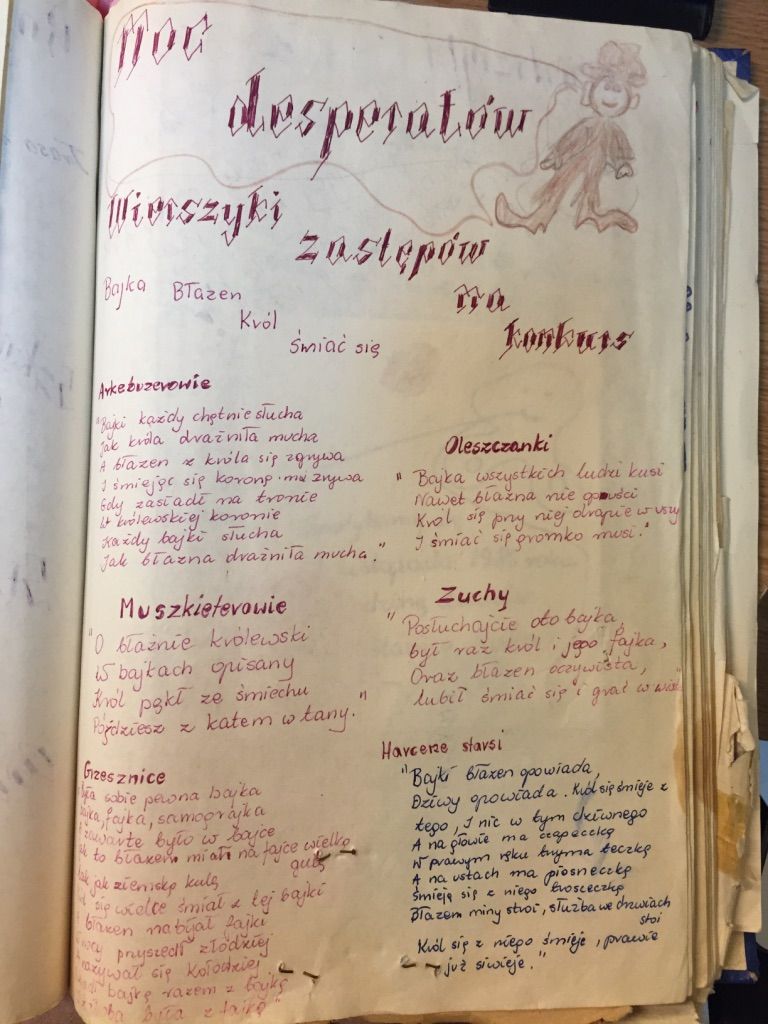 Moc
desperatów
Wierszyki
zastępów
na
konkurs
Bajka Błazen
Król
Śmiać się
Arkebuzerowie
"Bajki każdy chętnie słucha
Jak króla drażniła mucha
A błazen z króla się zgrywa
I śmiejąc się koronę mu zrywa
Gdy zasiadł na tronie
W królewskiej koronie
Każdy bajki słucha
Jak błazna drażniła mucha."
Muszkieterowie
"O błaźnie królewski
W bajkach opisany
Król pękł ze śmiechu
Pójdziesz z katem w tany."
Grzesznice
Była sobie pewna bajka
Bajka, fajka, samograjka
zawarte było w bajce
to błazen miał na fajce wielką
gulę
jak ziemską kulę
się wielce śmiał z tej bajki
błazen nabijał fajki
nocy przyszedł złodziej
nazywał się Kołodziej
bajkę razem z bajką
była z fajką"
Oleszczanki
"Bajka wszystkich ludzi kusi
Nawet błazna nie opuści
Król się przy niej drapie w uszy
I śmiać się gromko musi."
Zuchy
"Posłuchajcie oto bajka,
był raz król i jego fajka,
Oraz błazen oczywista,
lubił śmiać się i grać w
Harcerze starsi
"Bajki błazen opowiada,
Dziwy opowiada. Król się śmieje z
tego, I nic w tym dziwnego
A na głowie ma czapeczkę
W prawym ręku trzyma teczkę
A na ustach ma piosneczkę
Śmieją się z niego troszeczkę
Błazen miny stroi, służba we drzwiach
stoi
Król się z niego śmieje, prawie
już siwieje."